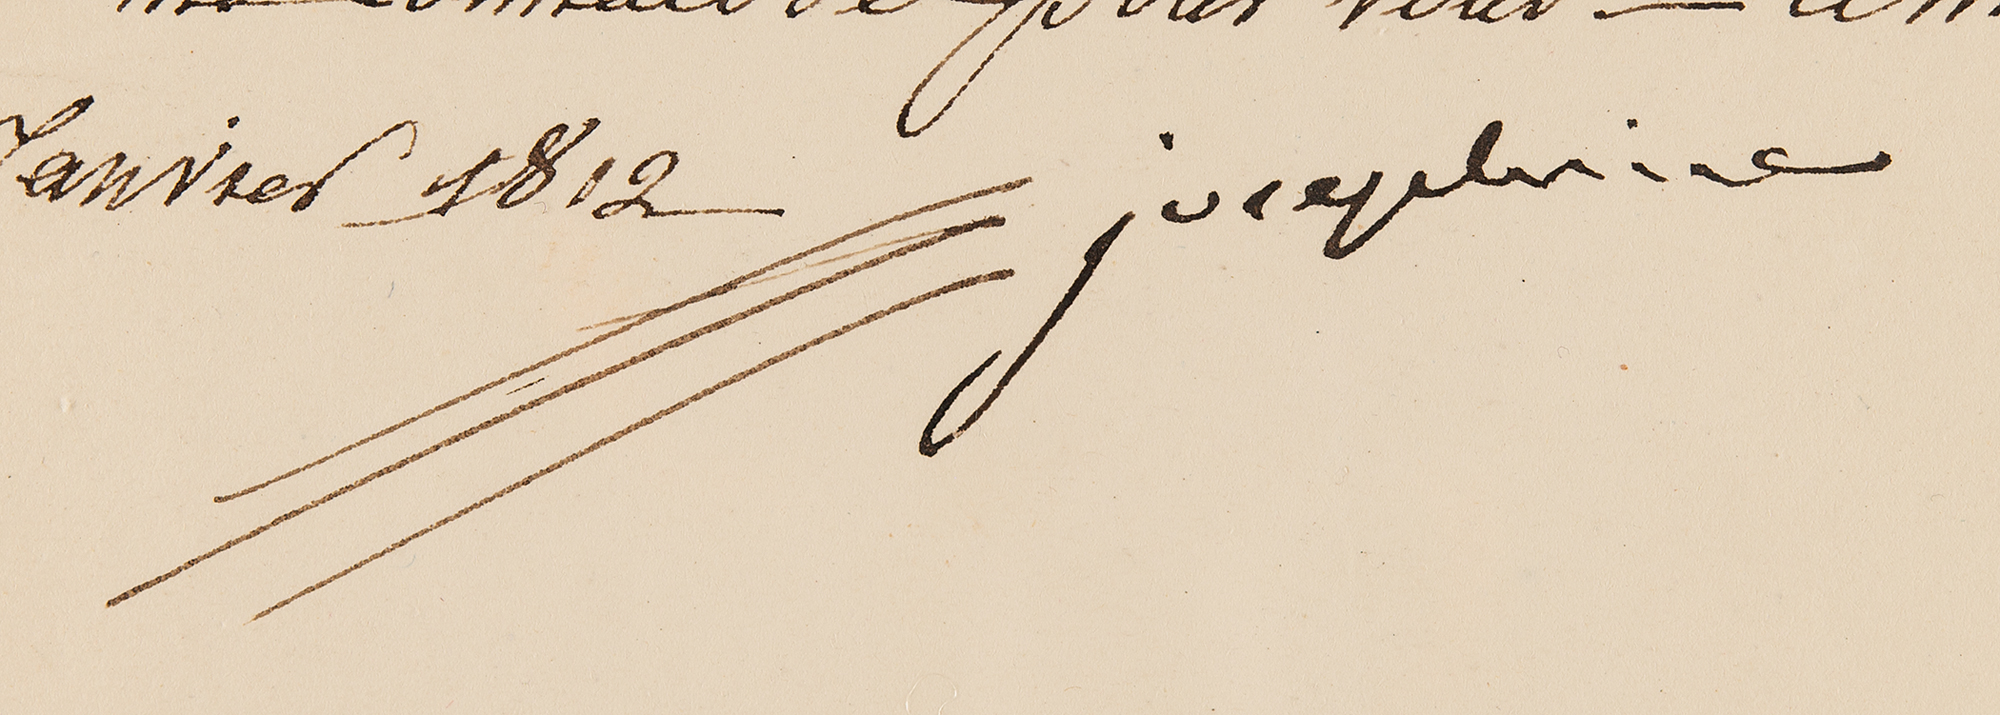 pour vous
Janvier 1812
josephine